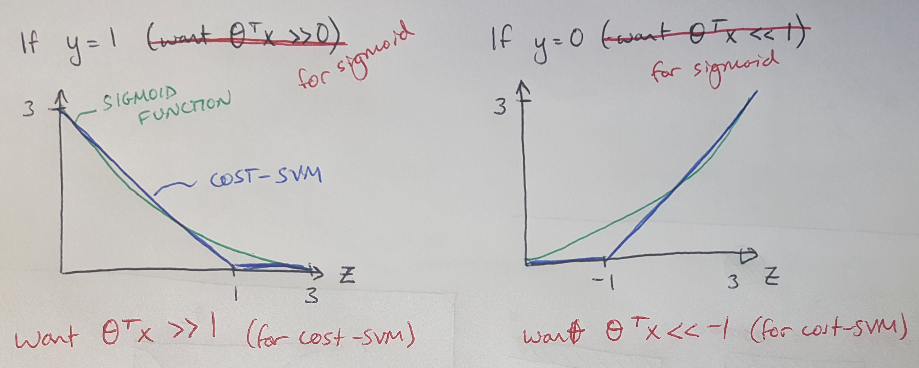 If y=1 (want θᵀx >>0)
for sigmoid
3
SIGMOID
FUNCTION
COST-SVM
1
3
Z
want θᵀx >> 1 (for cost-SVM)
If y=0 (want θᵀx << 1)
for sigmoid
3
-1
3
Z
want θᵀx << -1 (for cost-SVM)